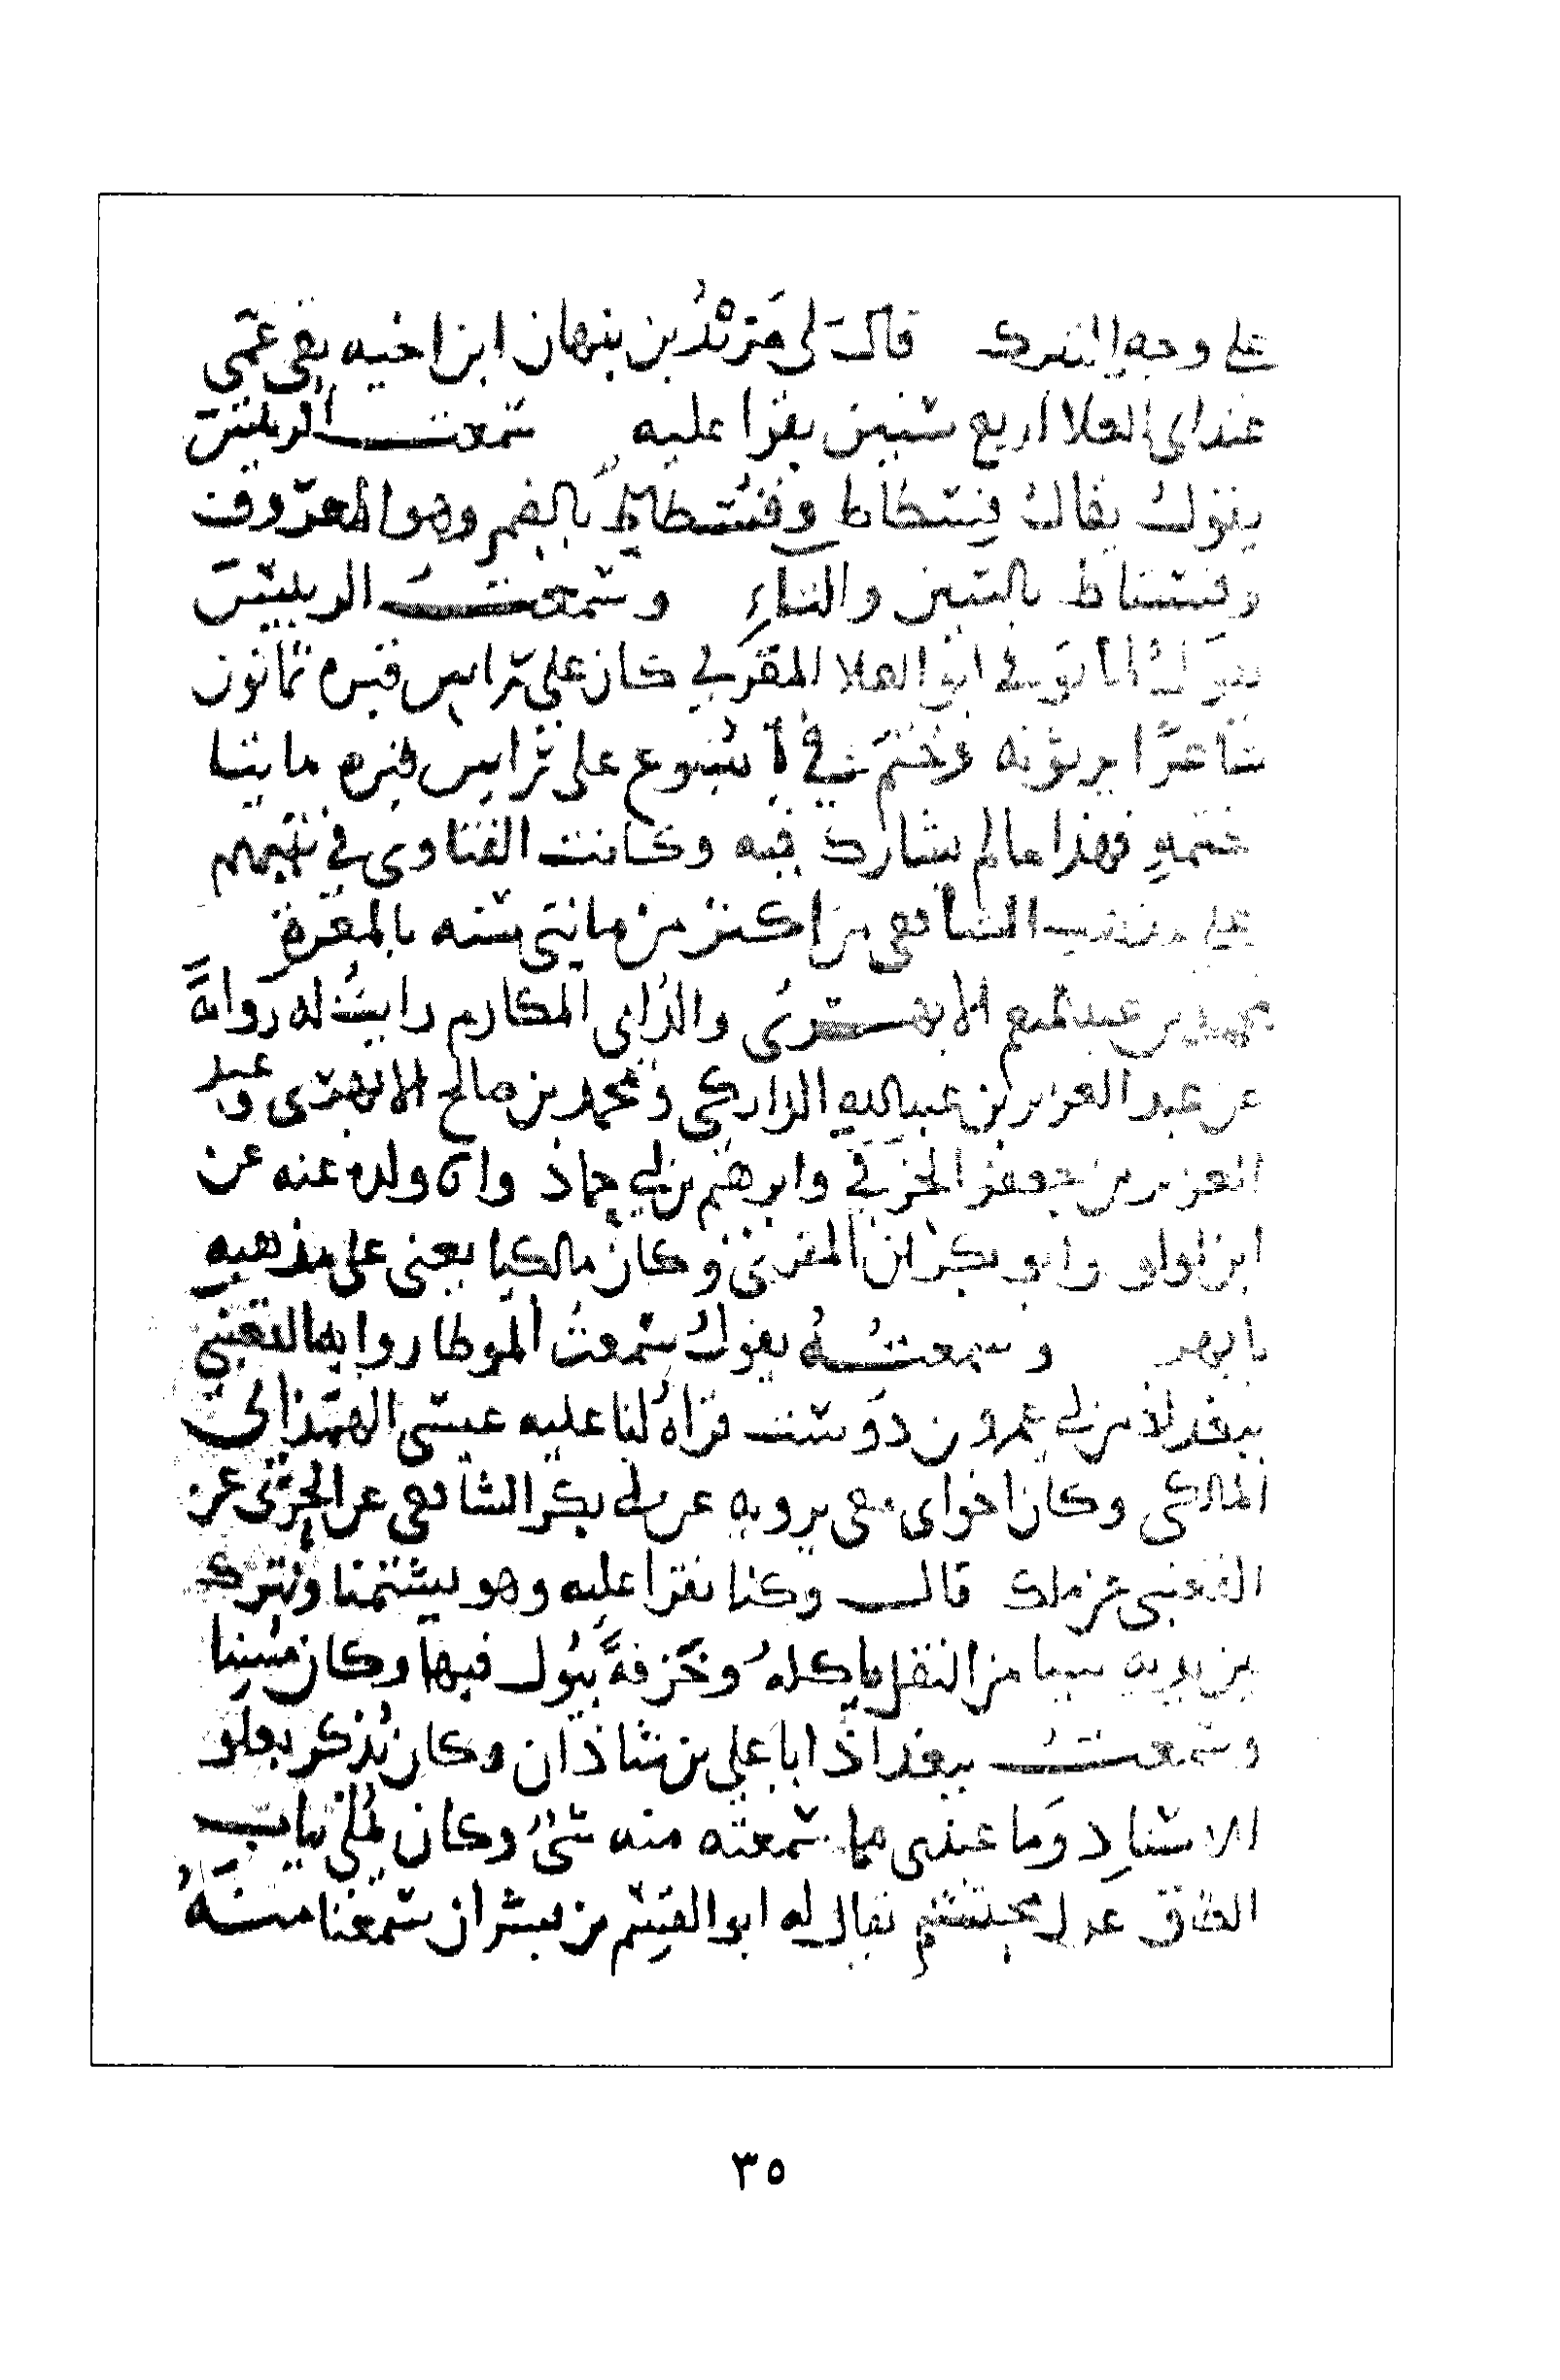 على وجه الفرك قال لي مرثد بن نبهان ابن اخيه بقي عمي
عند ابي العلا اربع سنين يقرا عليه سمعت الرييس
يقول يقال فسطاط وفسطاط بالضم وهو المعروف
وفستاط بالسين والتاء وسمعت الرييس
يقول لما توفي ابو العلا المقري كان على راس قبره ثمانون
شاعرا يرثونه وختم في اسبوع على راس قبره مايتا
ختمه فهذا ما لم يشارك فيه وكانت الفتاوى في بيتهم
على مذهب الشافعي من اكثر من مايتي سنه بالمعرة
محمد بن عبد المنعم الابهري والد ابي المكارم رايت له رواية
عن عبد العزيز بن عبد الله الداركي ومحمد بن صالح الابهري وعبد
العزيز بن جعفر الخرقي وابرهيم بن ابي حماد وان ولده عنه عن
ابن لولو وابو بكر ابن المقري وكان مالكيا يعني على مذهبه
بابهر وسمعته يقول سمعت الموطا رواية القعنبي
ببغداذ من ابي عمرو بن دوست قراه لنا عليه عيسى الهمذاني
المالكي وكان اخواي معي يرويه عن ابي بكر الشافعي عن الحربي عن
القعنبي عن ملك قال وكنا نقرا عليه وهو يشتمنا ونترك
بين يديه شيا من النقل ياكله وخزفة يبول فيها وكان مسنا
وسمعت ببغداذ ابا علي بن شاذان وكان يذكر بعلو
الاسناد وما عندي مما سمعته منه شي وكان يملي بباب
الطاق عدل محتشم يقال له ابو القسم بن بشران سمعنا منه
٣٥